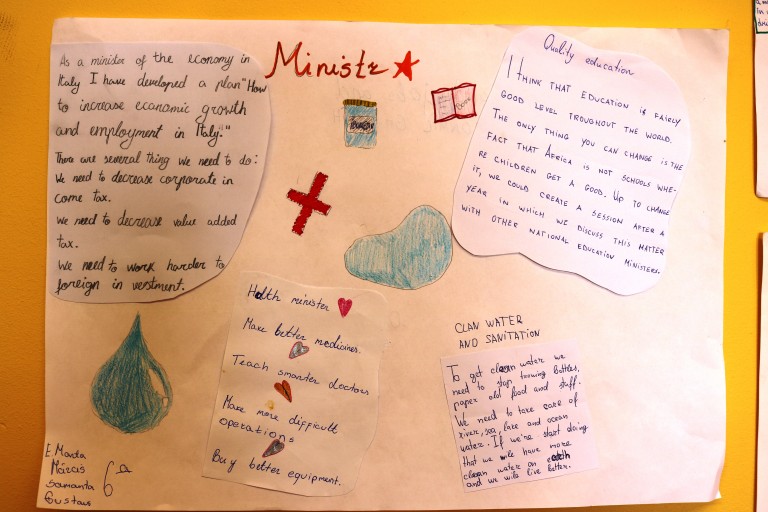 Ministr
As a minister of the economy in
Italy I have developed a plan "How
to increase economic growth
and employment in Italy."
There are several thing we need to do:
We need to decrease corporate in
come tax.
We need to decrease value added
tax.
We need to work harder to
foreign in vestment.
Quality education
I THINK THAT EDUCATION IS FAIRLY
GOOD LEVEL TROUGHOUT THE WORLD.
THE ONLY THING YOU CAN CHANGE IS THE
FACT THAT AFRICA IS NOT SCHOOLS WHE-
RE CHILDREN GET A GOOD. UP TO CHANGE
IT, WE COULD CREATE A SESSION AFTER A
YEAR IN WHICH WE DISCUSS THIS MATTER
WITH OTHER NATIONAL EDUCATION MINISTERS.
Helth minister
Make better medicines.
Teach smarter doctors
Make more difficult
operations
Buy better equipment.
CLAN WATER
AND SANITATION
To get clean water we
need to stop trowing bottles,
paper old food and stuff.
We need to take care of
river, sea, lake and ocean
water. If we're start doing
that we will have more
clean water on earth
and we will live better.
E.Marta
Márcis
Samanta
Gustavs
6a